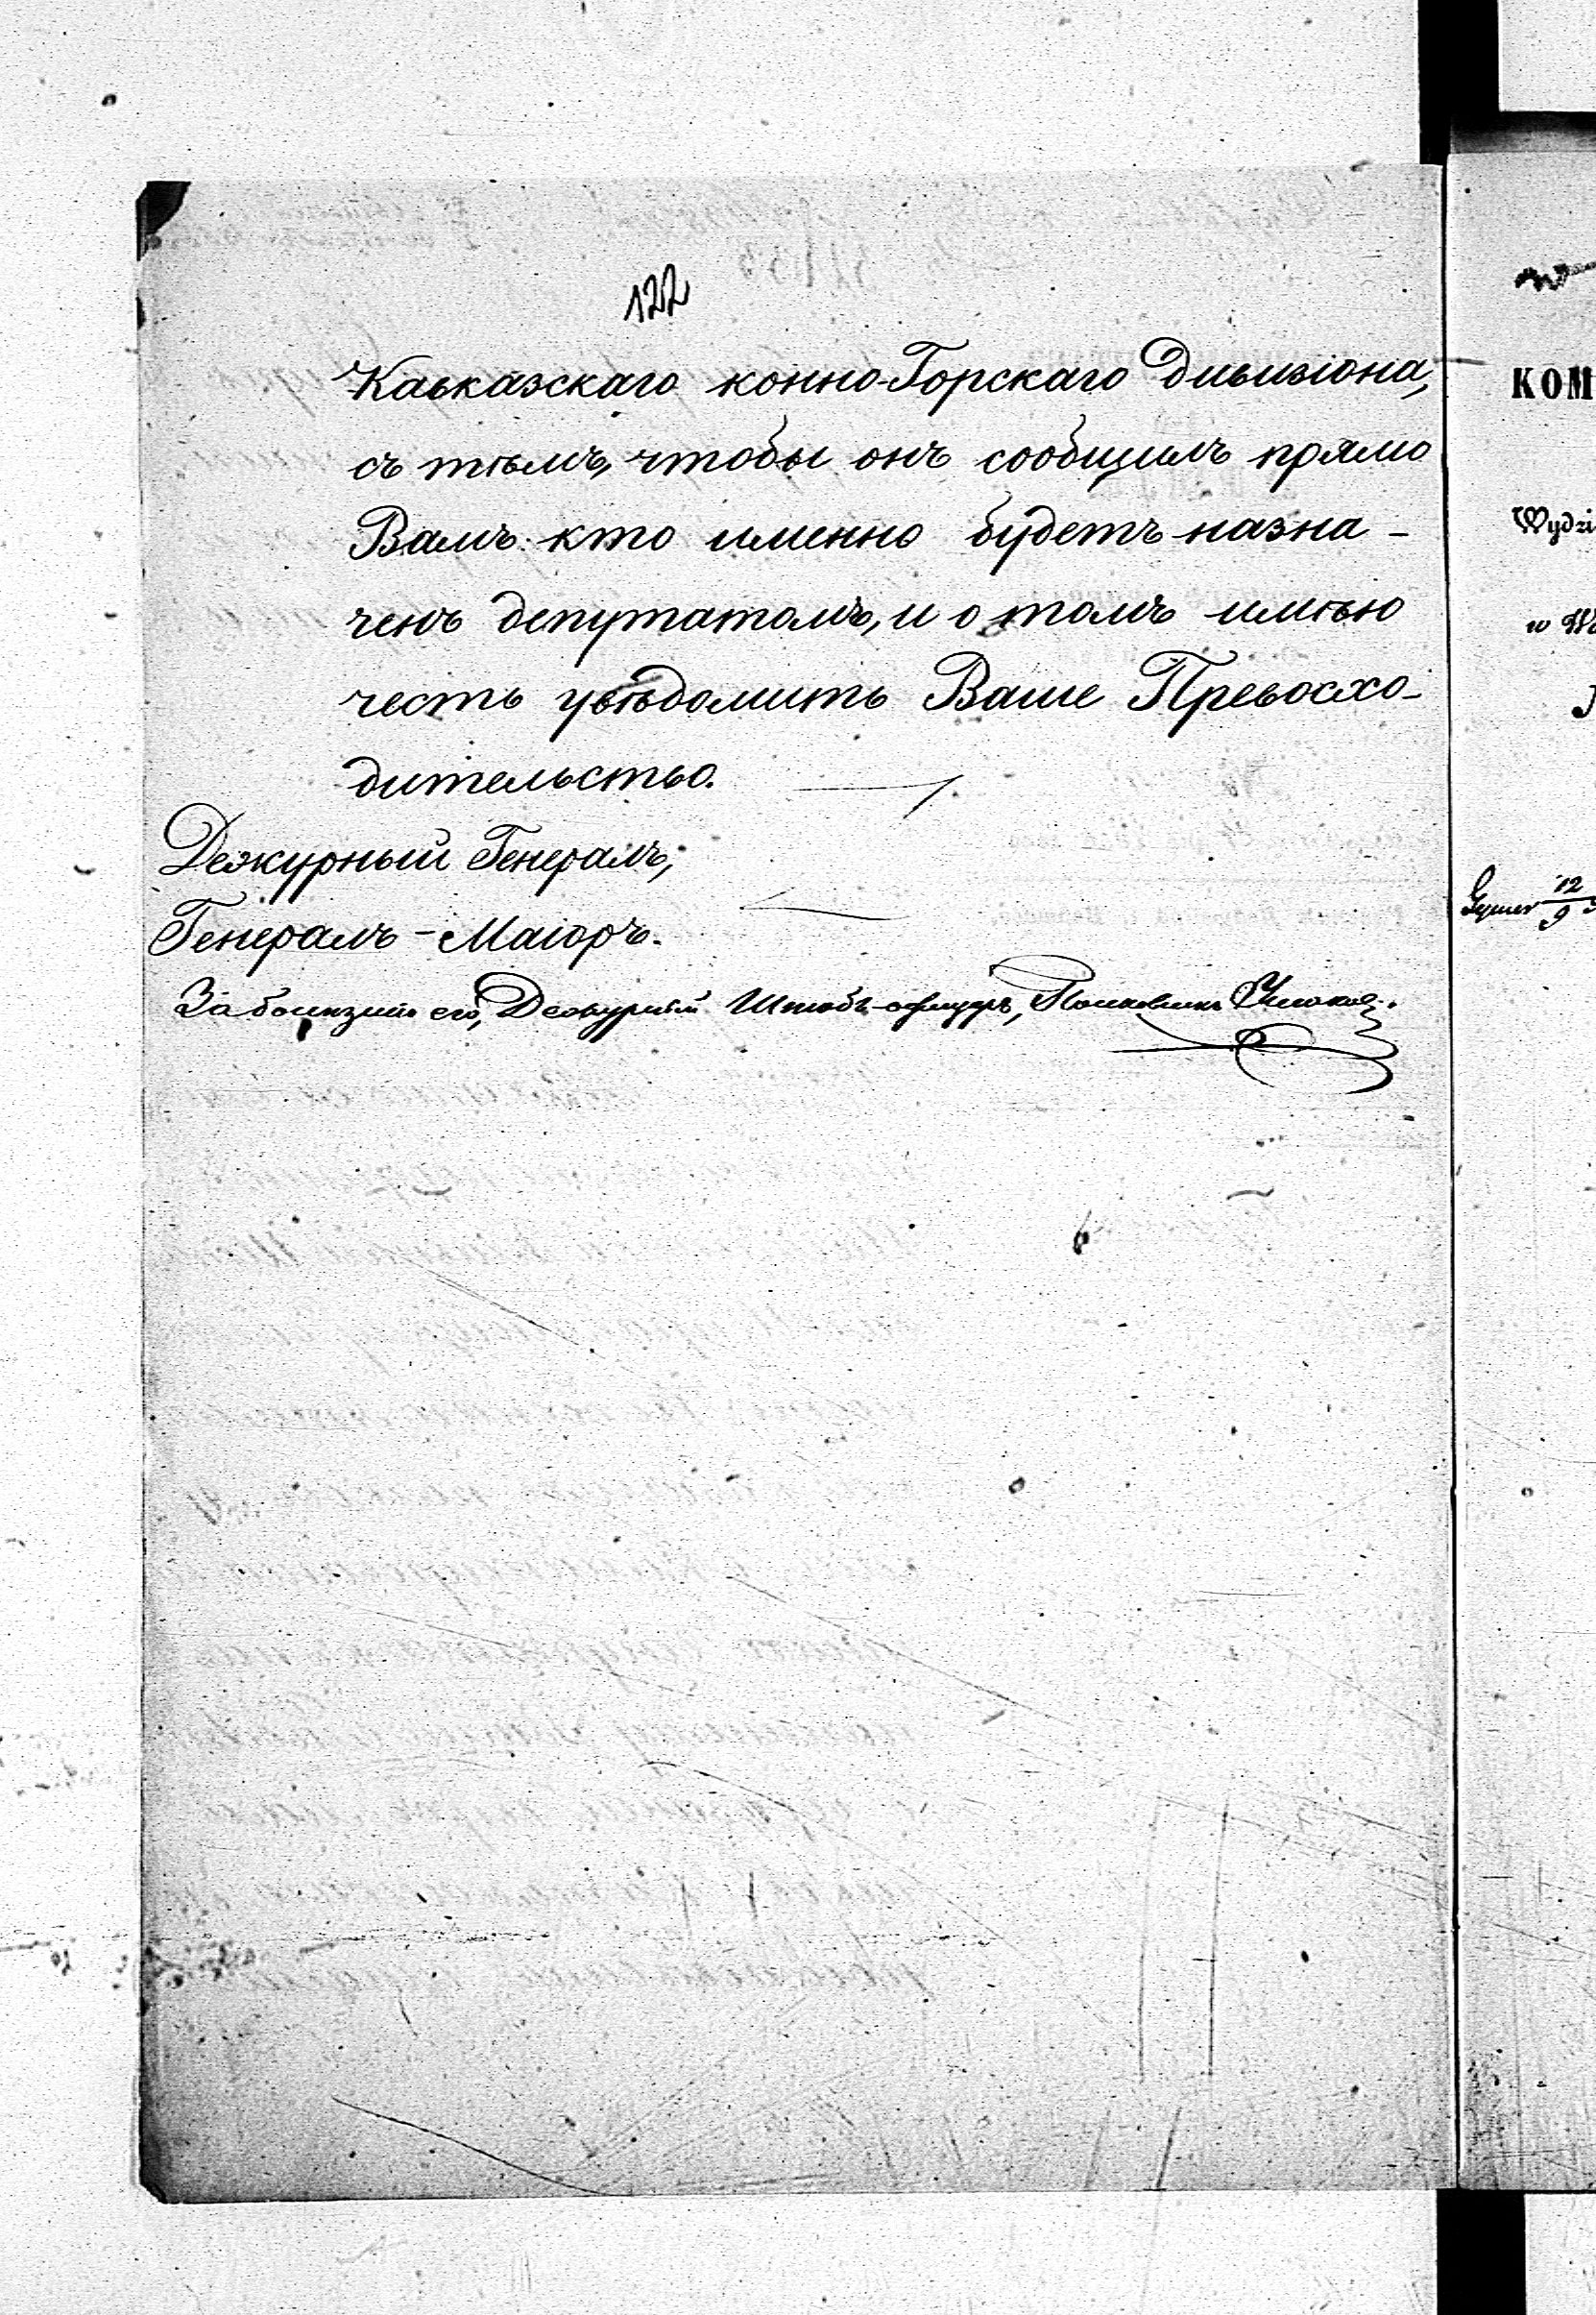 122
Кавказскаго конно-Горскаго Дивизіона,
съ тѣмъ, чтобы онъ сообщилъ прямо
Вамъ: кто именно будетъ назна-
ченъ депутатомъ, и о томъ имѣю
честь увѣдомить Ваше Превосхо-
дительство.
Дежурный Генералъ,
Генералъ-Маіоръ.
За болѣзнію его, Дежурный Штабъ-офицеръ, Полковникъ
КОМ
Wydzi
w
12
9